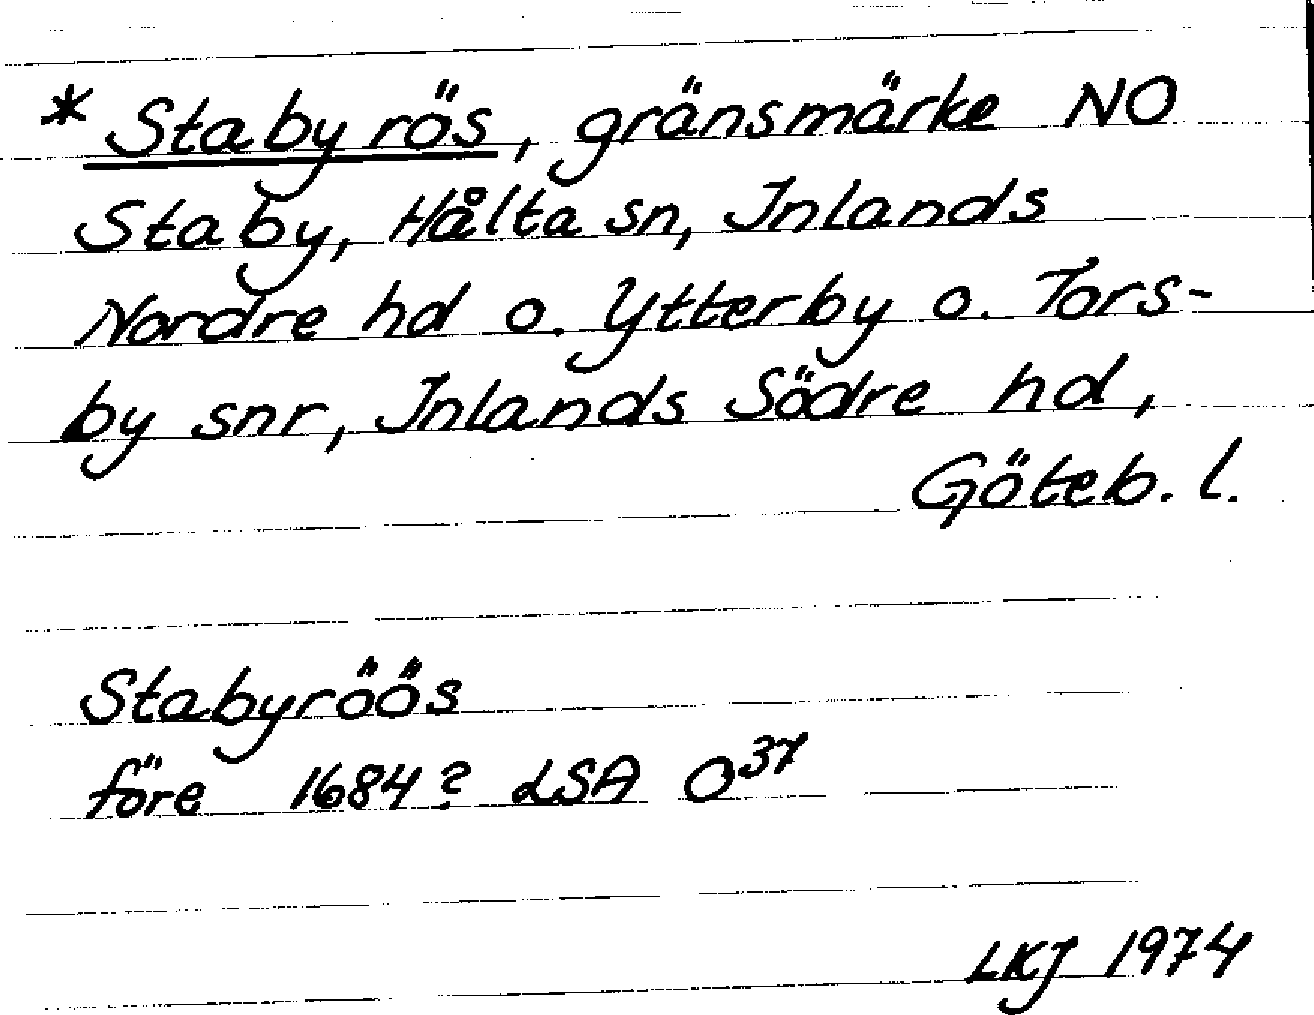 * Staby rös, gränsmärke NO
Staby, Hålta sn, Inlands
Nordre hd o. Ytterby o. Tors-
by snr, Inlands Södre hd,
Göteb. l.
Stabyröös
före 1684? LSA O³⁷
LKJ 1974